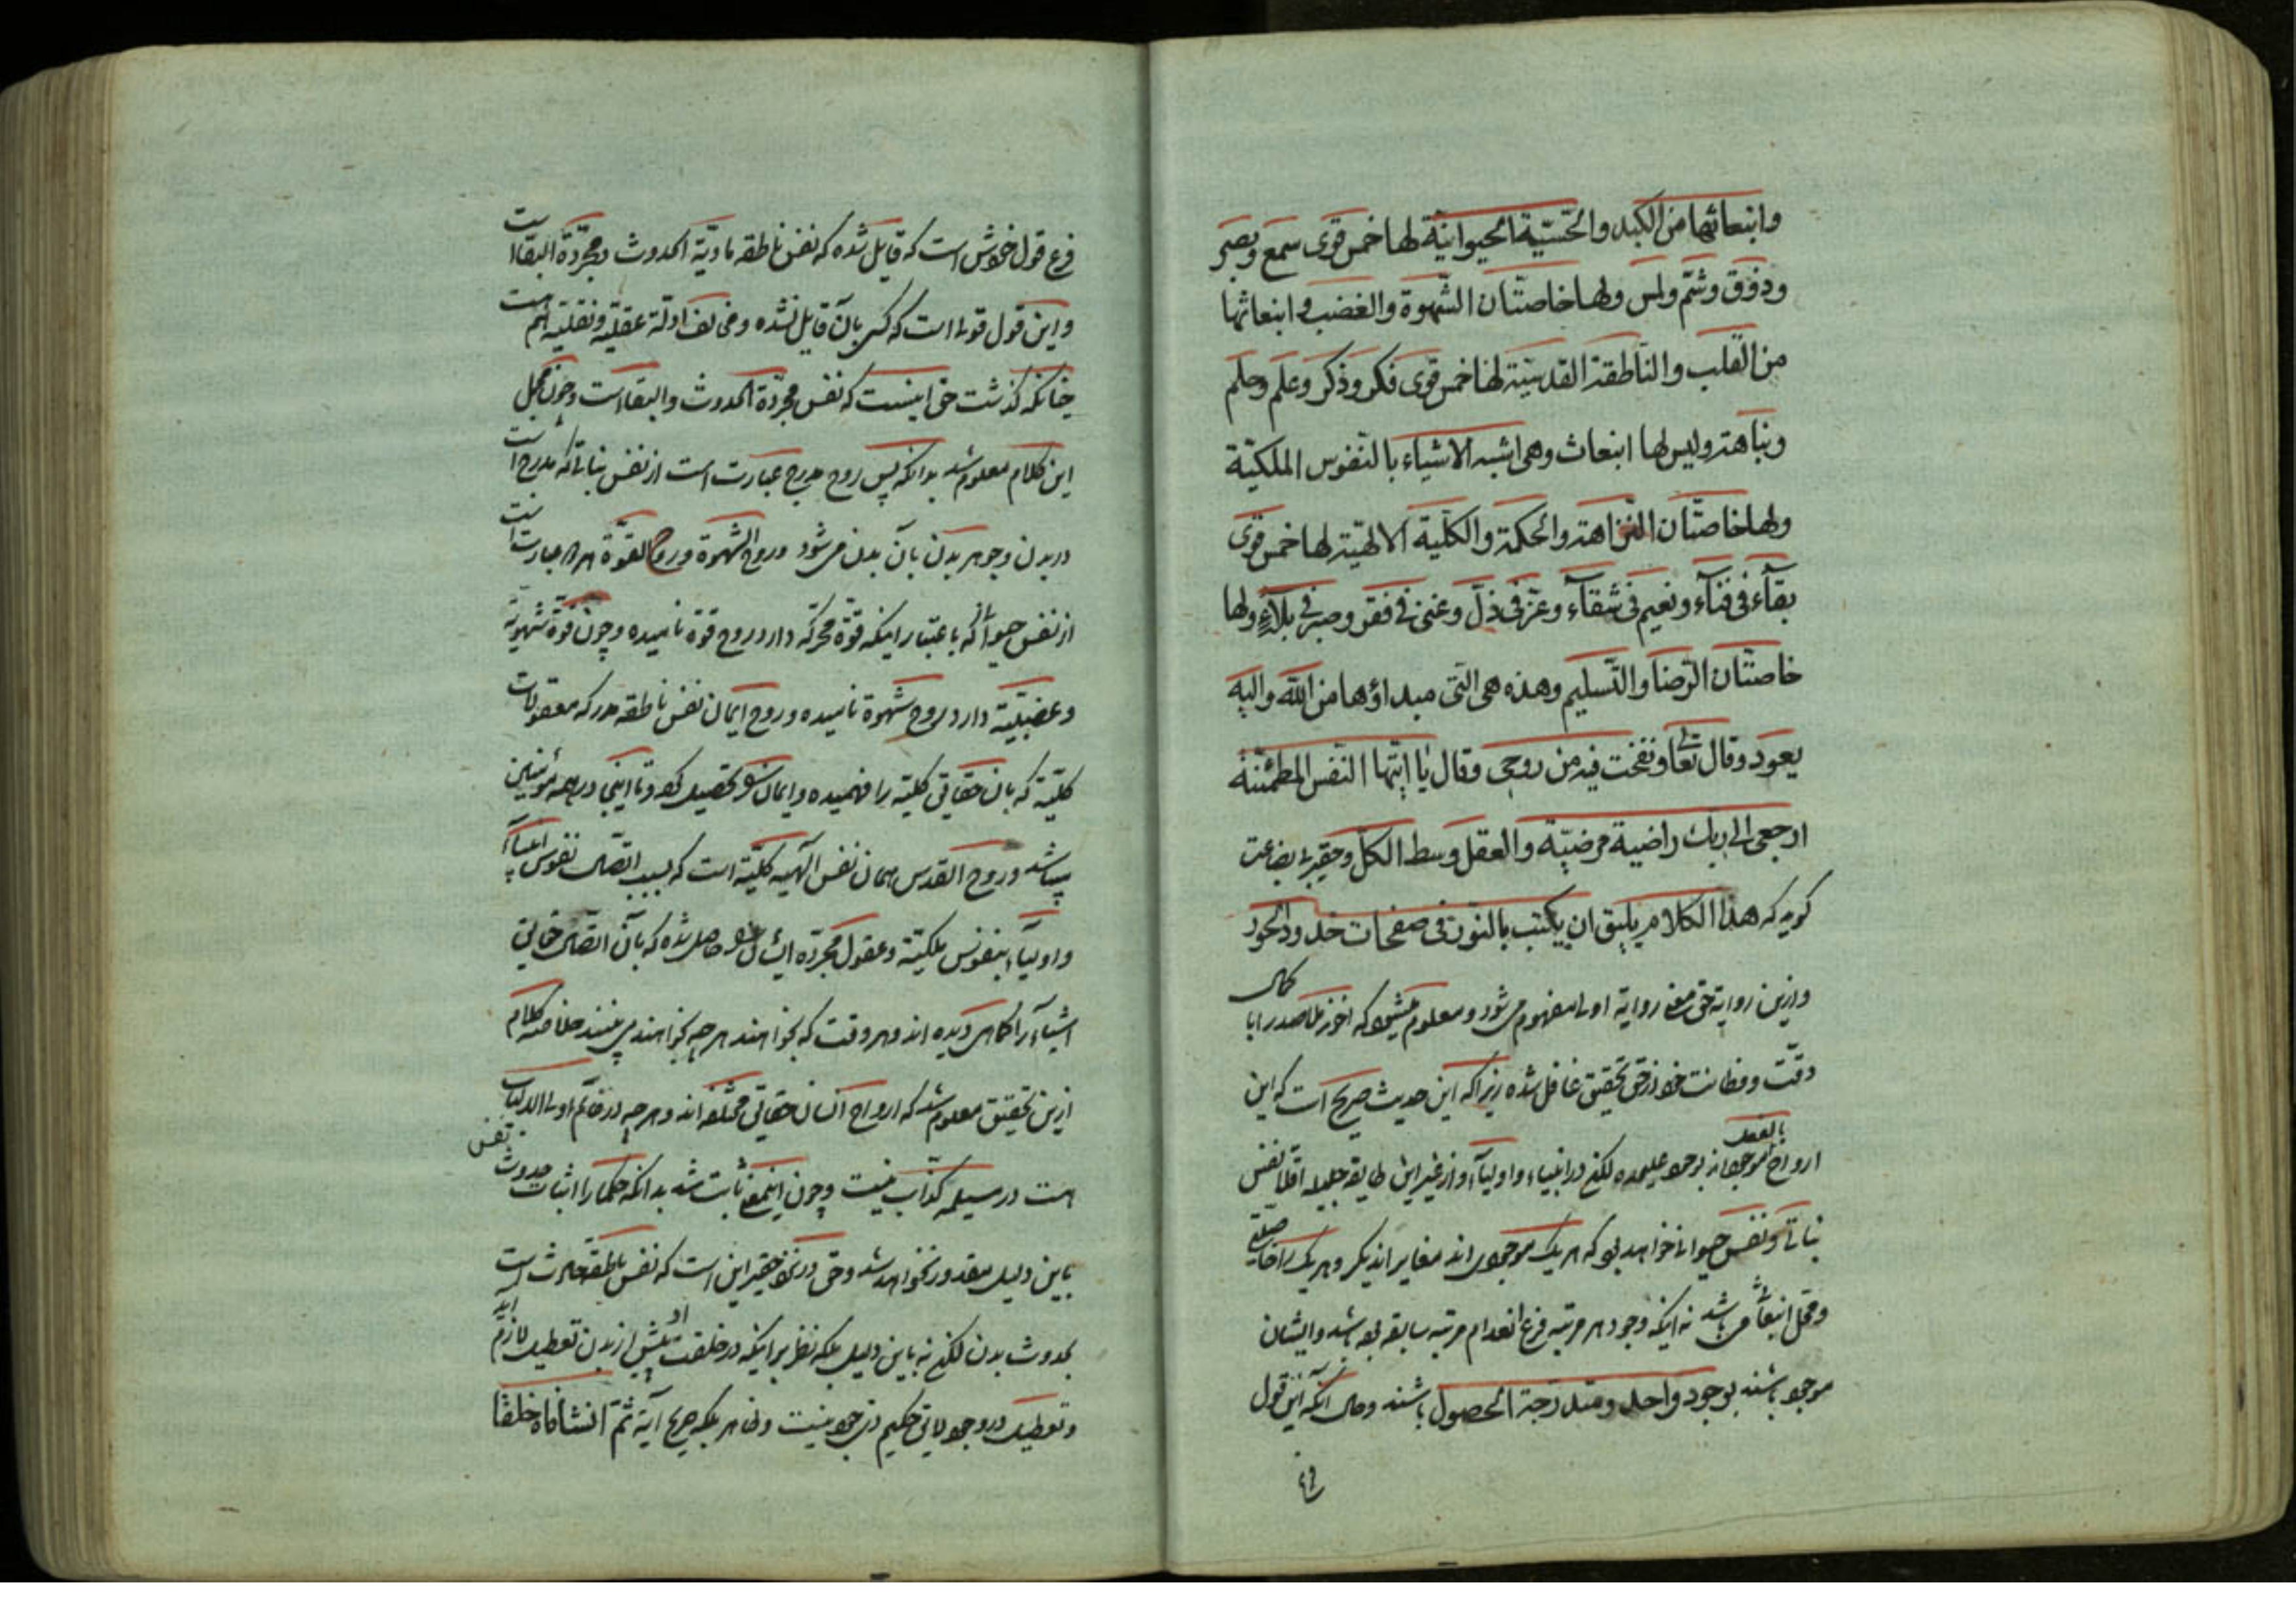 وانبعاثها من الكبد والحسّيّة الحيوانيّة لها خمس قوى سمع وبصر
وذوق وشمّ ولمس ولها خاصّتان الشّهوة والغضب وانبعاثها
من القلب والنّاطقة القدسيّة لها خمس قوى فكر وذكر وعلم وحلم
ونباهة وليس لها انبعاث وهى اشبه الاشياء بالنّفوس الملكيّة
ولها خاصّتان النّزاهة والحكمة والكلّيّة الالهيّة لها خمس قوى
بقآء فى فنآء ونعيم فى شقآء وعزّ فى ذلّ وغنى فى فقر وصبر فى بلآء ولها
خاصّتان الرّضا والتّسليم وهذه هى الّتى مبداؤها من اللّه واليه
يعود وقال تعالى ونفخت فيه من روحى وقال يا ايّتها النّفس المطمئنّة
ارجعى الى ربّك راضية مرضيّة والعقل وسط الكلّ وحقير بى بضاعت
كويد كه هذا الكلام يليق ان يكتب بالنّور فى صفحات خدود الحور
وازين رواية حتى معنى رواية اولى مفهوم مى شود ومعلوم ميشود كه اخوند ملا صدرا با كمال
دقّت وفطانت خود از حق تحقيق غافل شده زيرا كه اين حديث صريح است كه اين
ارواح بالفعل موجودند بوجود عليحده لكن در انبياء واوليآء واز غير اين طايفه جليله اقلا نفس
نباتى ونفس حيوانى خواهد بود كه هر يك موجودى اند مغاير از ديكر وهر يك را خاصيتى
ومحل انبعاثى مى باشد نه اينكه وجود هر مرتبه فرع انعدام مرتبه سابقه بوده باشد وايشان
موجود باشند بوجود واحد ومتدرّجة الحصول باشند وحال آنكه اين قول
فرع قول خودش است كه قايل شده كه نفس ناطقه مادّيّة الحدوث ومجرّدة البقا است
واين قول قولى است كه كسى بآن قايل نشده ومخالف ادلّه عقليّه ونقليّه هم است
چنانكه كذشت حق اينست كه نفس مجرّدة الحدوث والبقاء است وچون مجمل
اين كلام معلوم شد بدانكه پس روح مدرج عبارت است از نفس نباتى كه مدرج است
در بدن وجوهر بدن بآن بدن مى شود وروح الشهوة وروح القوّة هر دو عبارت است
از نفس حيوانى كه باعتبار اينكه قوّة محرّكه دارد روح قوة ناميده وچون قوّة شهويّة
وغضبيّة دارد روح شهوة ناميده وروح ايمان نفس ناطقه مدركه معقولات
كلّيّة كه بان حقايق كليّة را فهميده وايمان خود تحصيل كرده وتا اينجا در همه مؤمنين
ميباشد وروح القدس همان نفس الهيه كليّة است كه بسبب اتّصال نفوس انبيآء
واوليآء بنفوس ملكيّة وعقول مجرّده ايشان حاصل شده كه بآن اتّصال حقايق
اشيآء را كماهى ديده اند وهر وقت كه بخواهند هر چه بخواهند مى بينند خلاصه كلام
ازين تحقيق معلوم شد كه ارواح انسان حقايق مختلفه اند وهر چه در خاتم اولى الالباب
هست در مسيلمه كذّاب نيست وچون اينمعنى ثابت شد بدانكه حكما را اثبات حدوث نفس
باين دليل مقدور نخواهد شد وحق در نزد حقير اين است كه نفس ناطقه حادث است
بحدوث بدن لكن نه باين دليل بلكه نظر بر اينكه در خلقت او پيش از بدن تعطيل لازم آيد
وتعطيل در وجود لايق حكيم ذى جود نيست وظاهر بلكه صريح آية ثمّ انشأناه خلقا